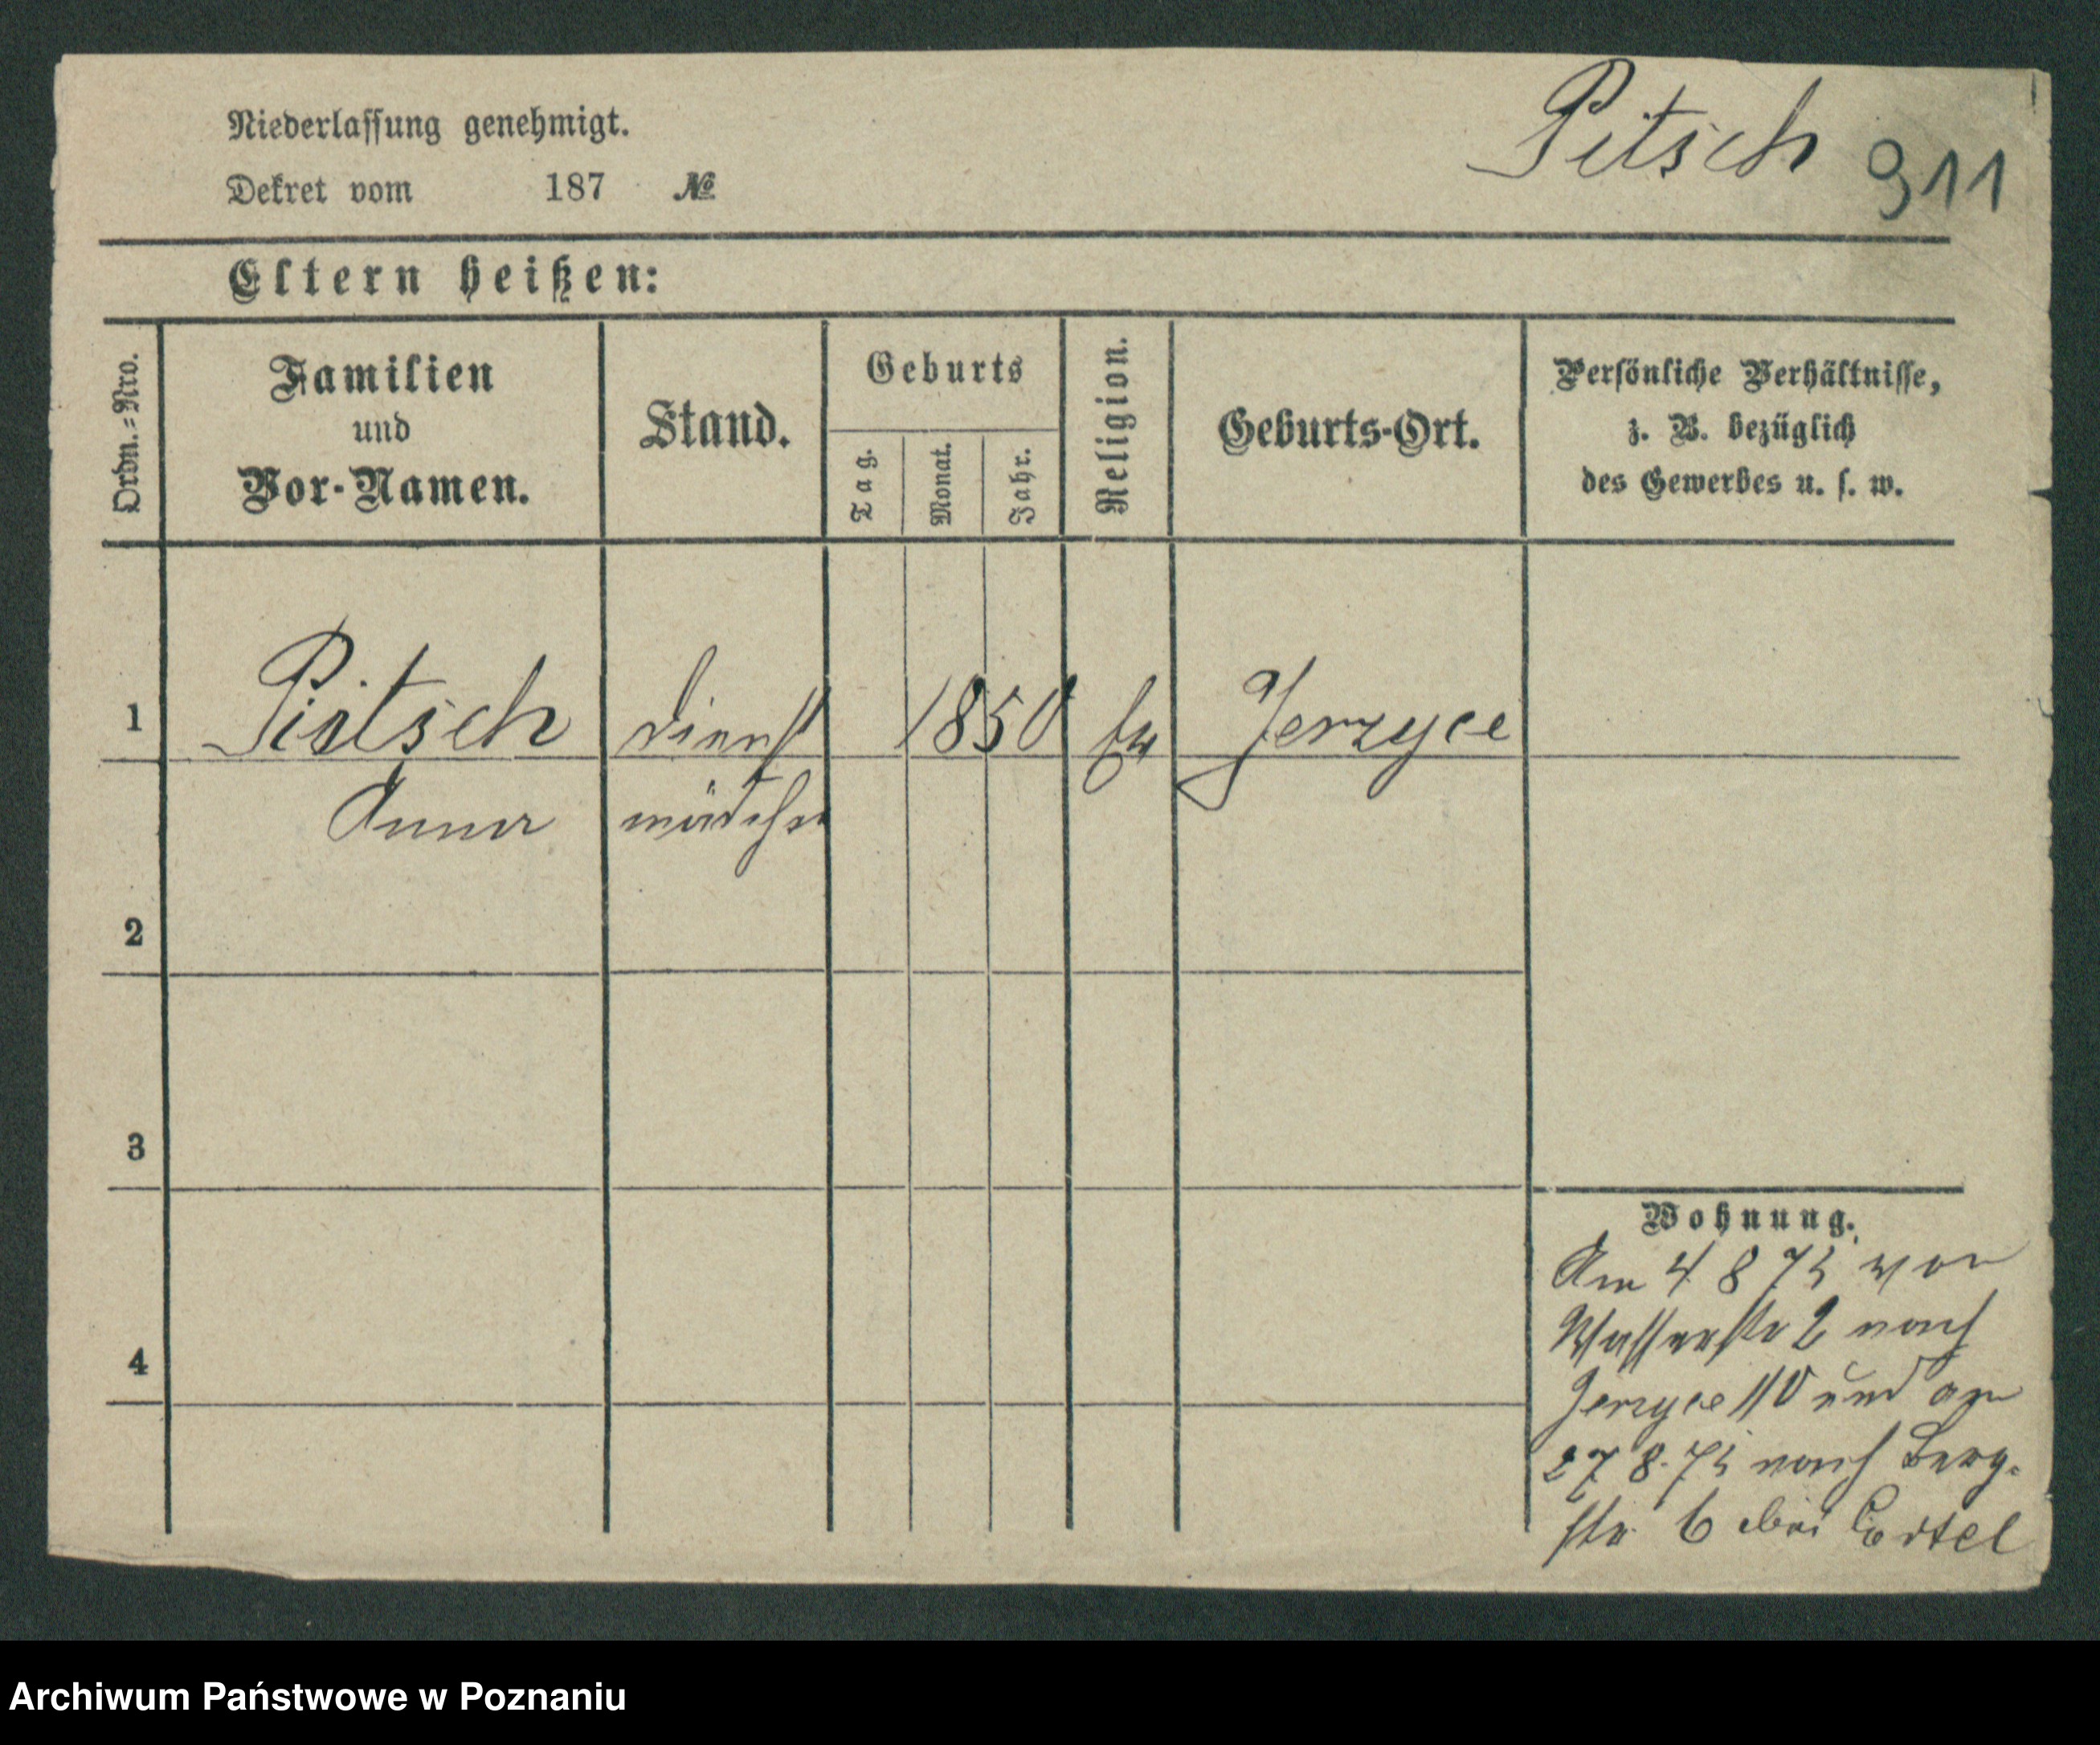 Niederlassung genehmigt.
Pitsch 911
Dekret vom 187 №
Eltern heißen:
Ordn.=Nro.
Familien
und
Vor-Namen.
Stand.
Geburts
Tag.
Monat.
Jahr.
Religion.
Geburts-Ort.
Persönliche Verhältnisse,
z. B. bezüglich
des Gewerbes u. s. w.
1 Pietsch dienst 1850 Ev Jerzyce
Anna mädchen
2
3
4
Wohnung.
Am 4 8 75 von
Wasserstr 2 nach
Jerzyce 110 und am
27 8. 75 nach Berg-
str. 6 bei Ertel
Archiwum Państwowe w Poznaniu